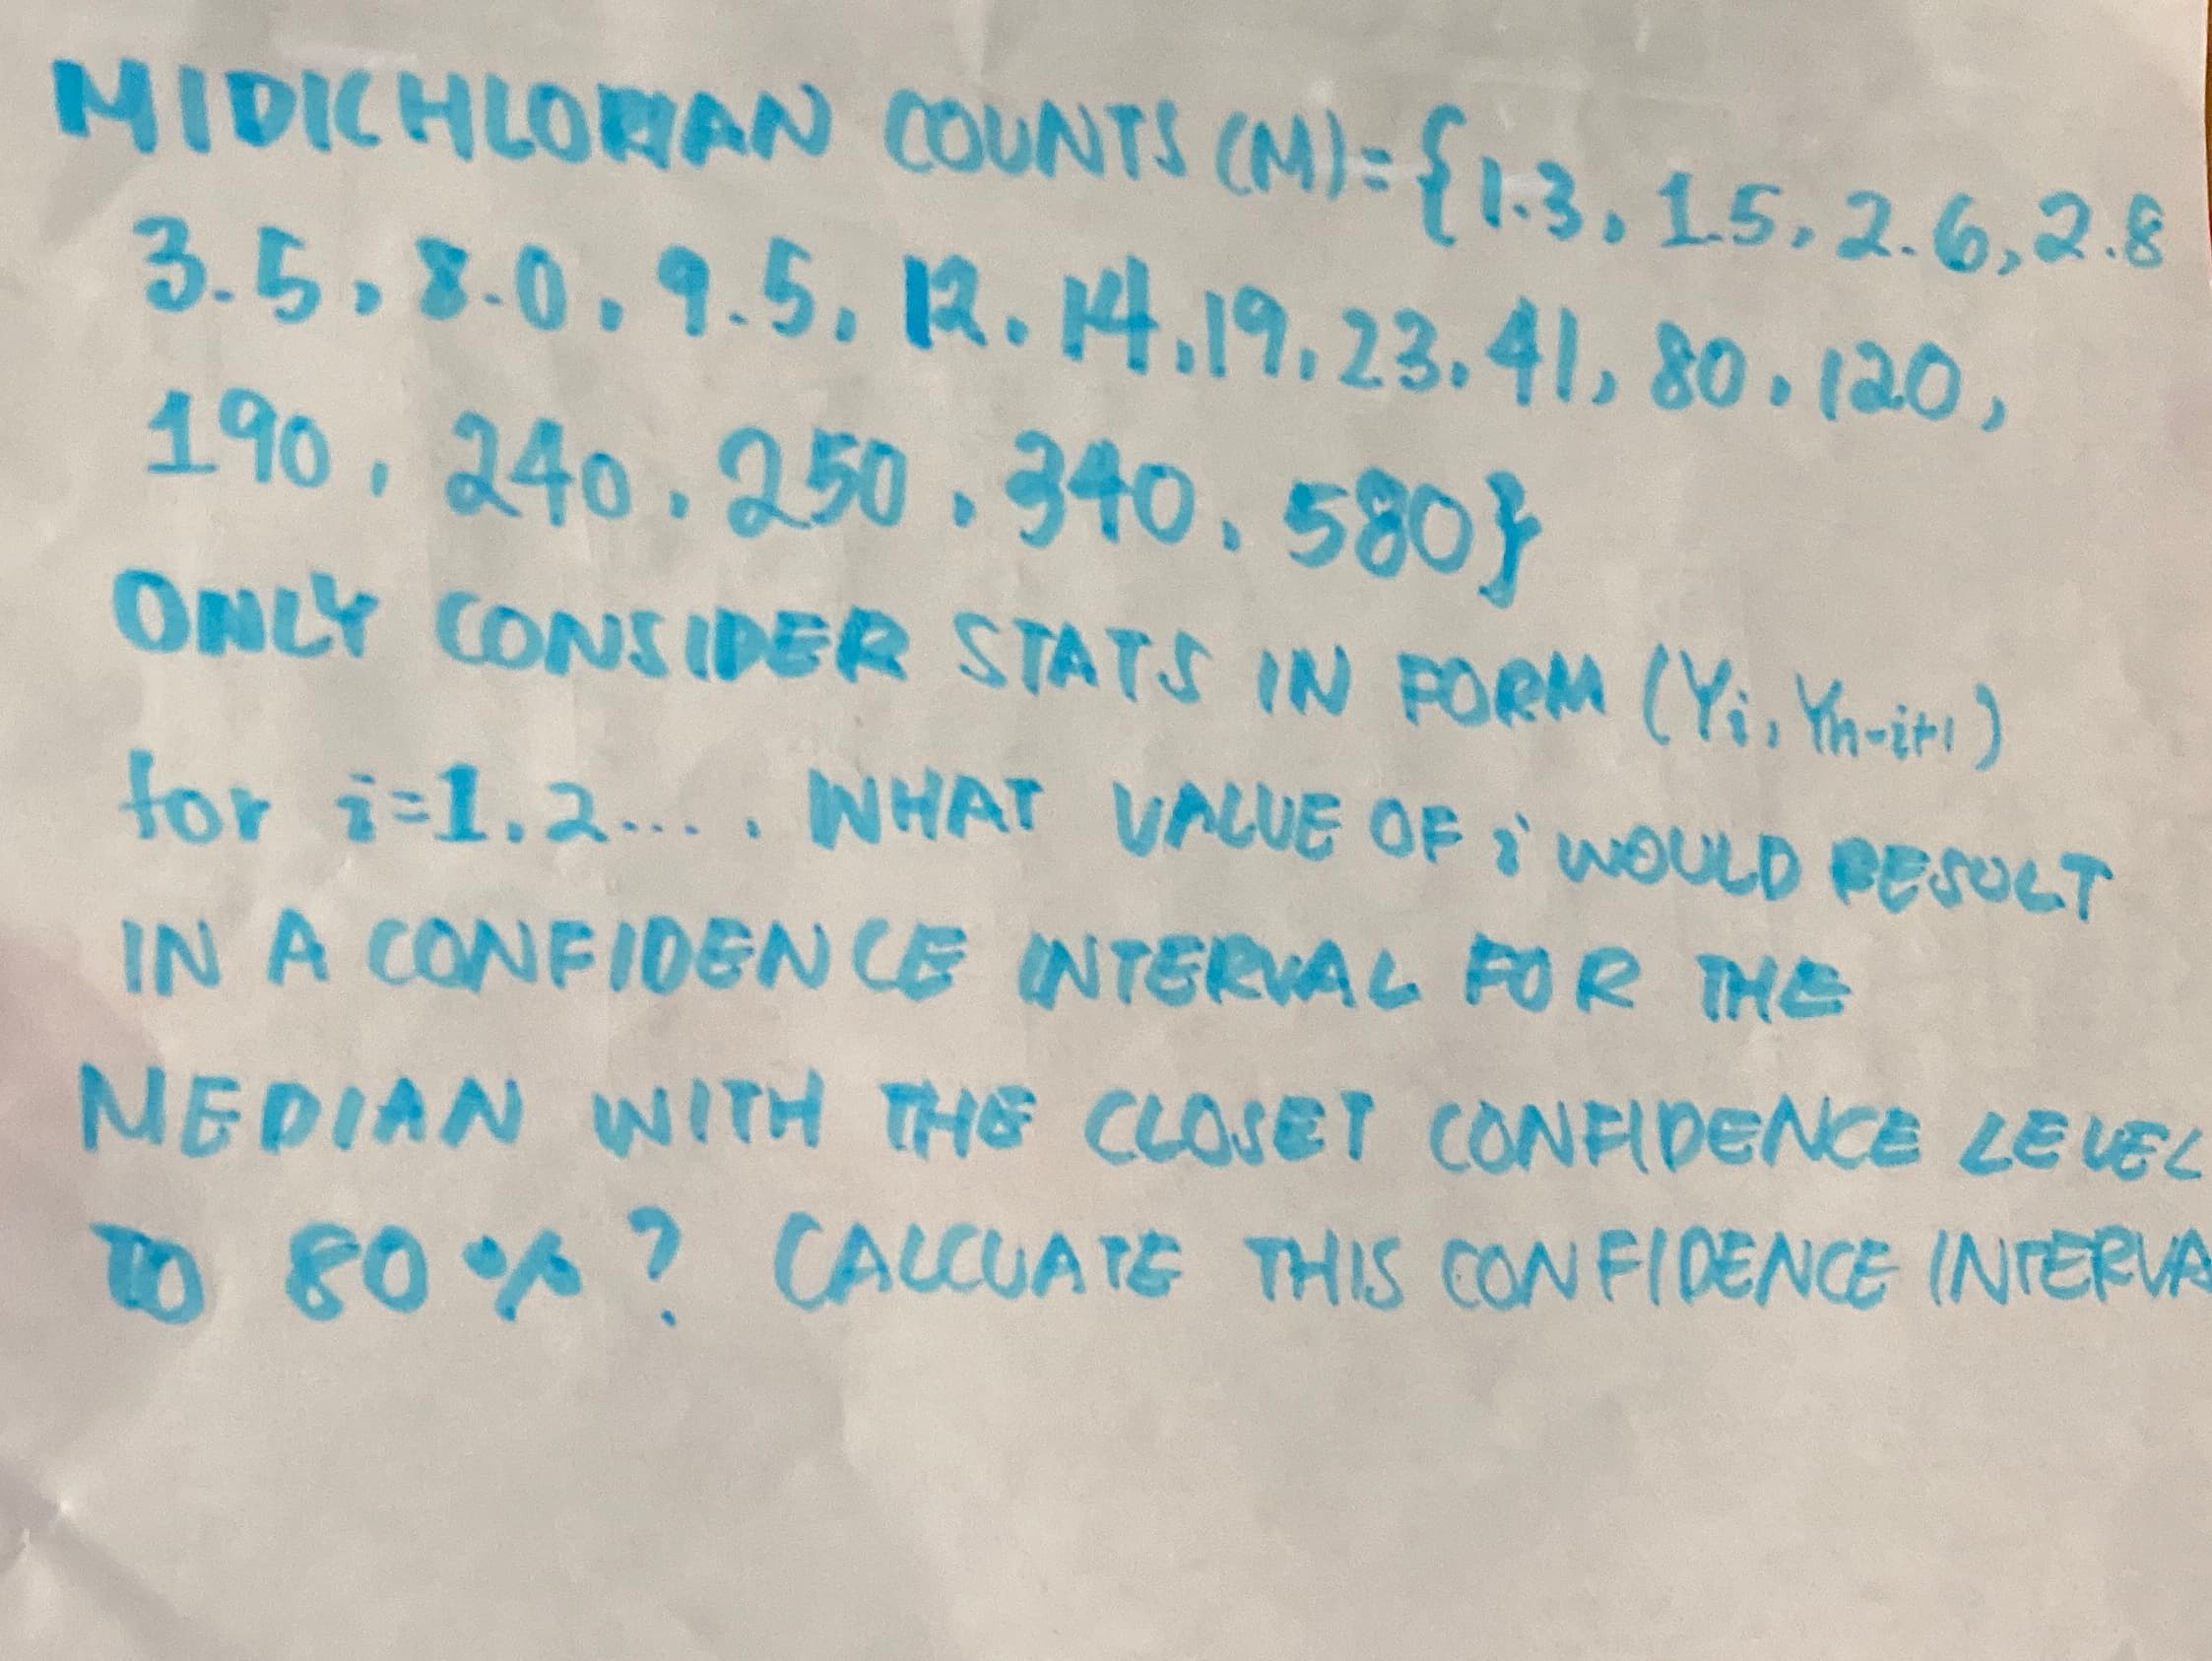 MIDICHLORIAN COUNTS (M)={1.3, 1.5, 2.6, 2.8
3.5, 8.0, 9.5, 12, 14, 19, 23, 41, 80, 120,
190, 240, 250, 340, 580}
ONLY CONSIDER STATS IN FORM (Yi, Yn-i+1)
for i=1,2.... WHAT VALUE OF i WOULD RESULT
IN A CONFIDENCE INTERVAL FOR THE
MEDIAN WITH THE CLOSET CONFIDENCE LEVEL
TO 80%? CALCUATE THIS CONFIDENCE INTERVA